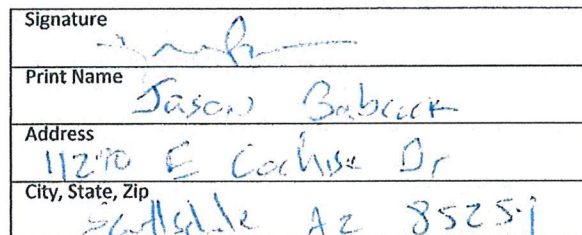 Signature
Print Name
Jason Babcock
Address
11270 E Cochise Dr
City, State, Zip
Scottsdale AZ 85259